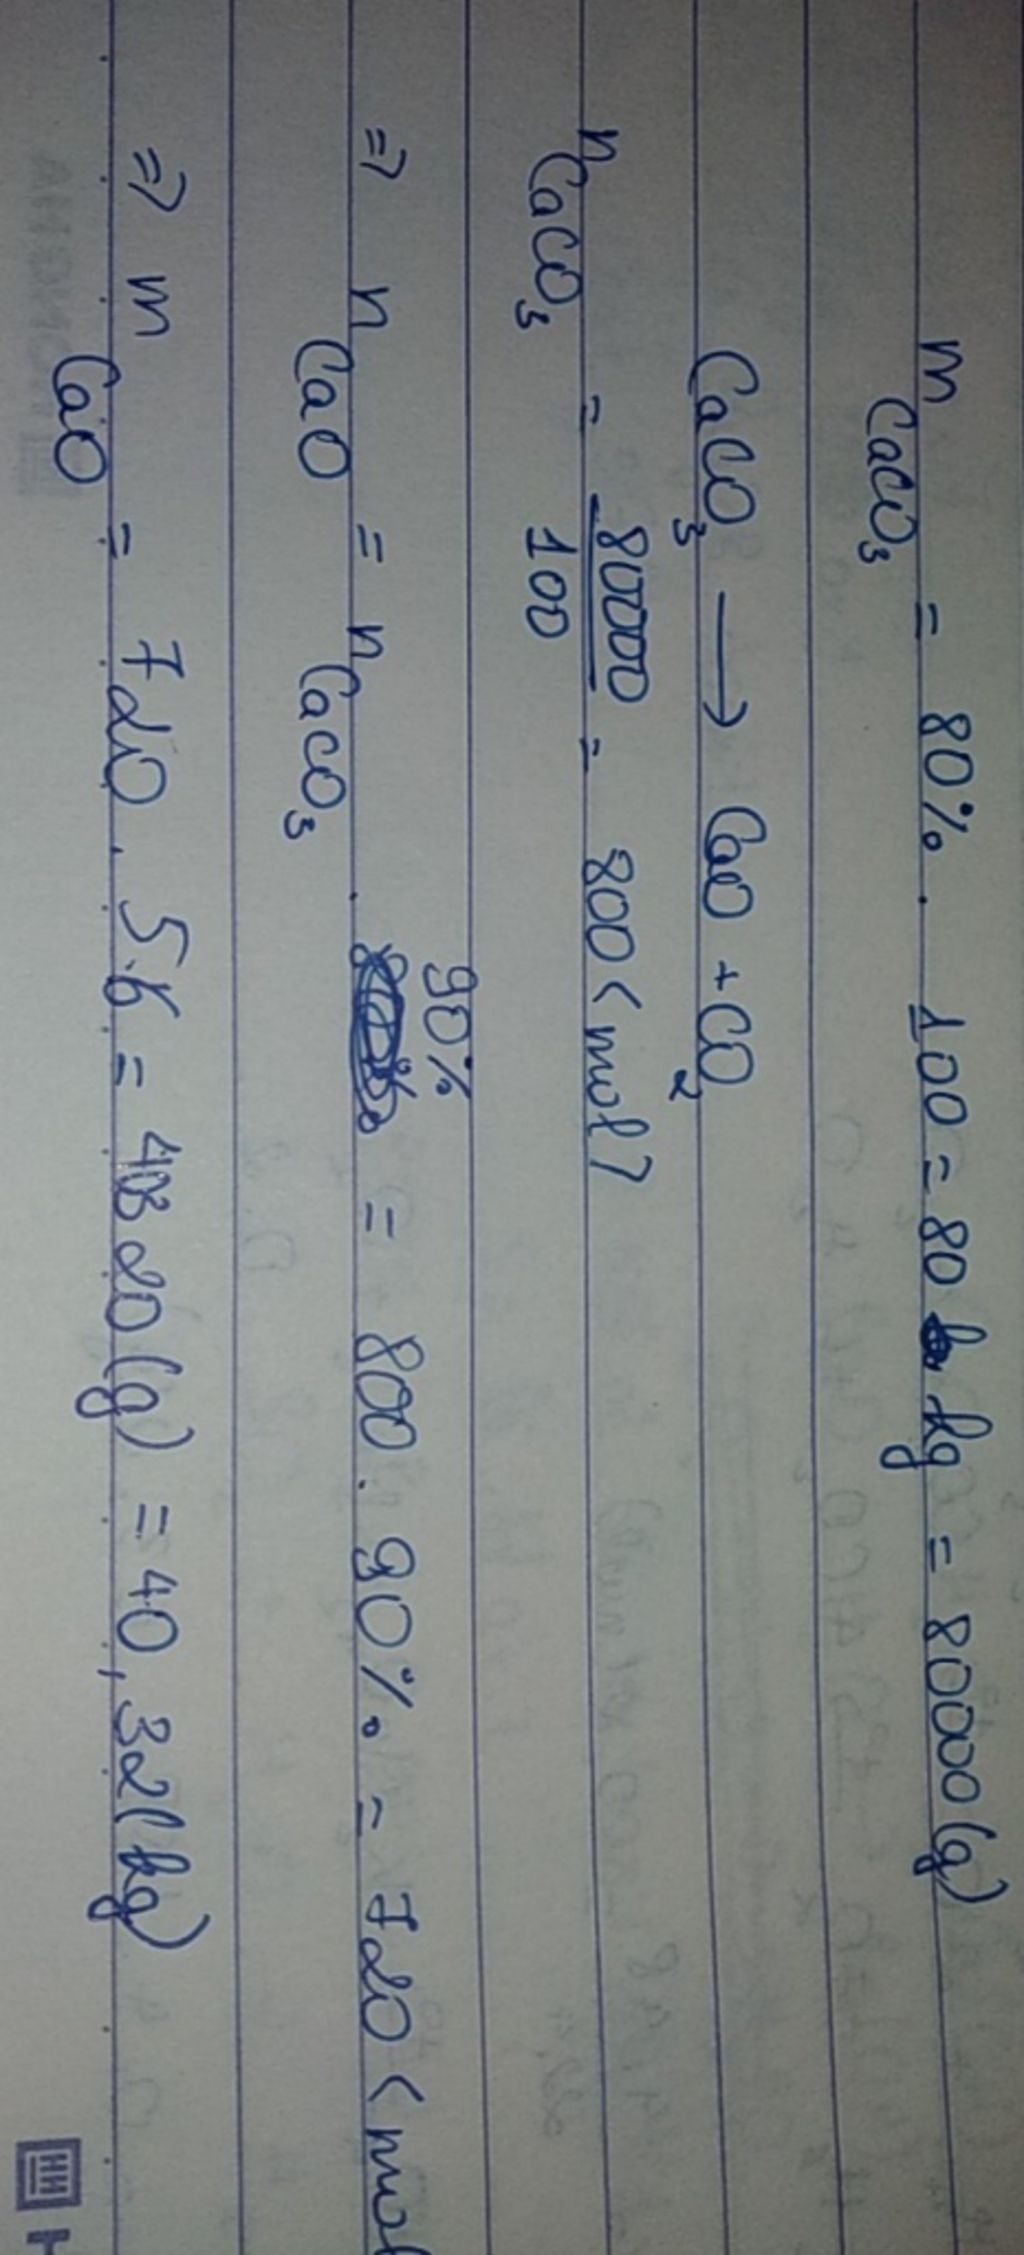 m CaCO3 = 80%. 100 = 80 kg = 80000 (g)
CaCO3 → CaO + CO2
n CaCO3 = 80000/100 = 800 (mol)
=> n CaO = n CaCO3 . 90% = 800 . 90% = 720 (mol
=> m CaO = 720 . 56 = 40320 (g) = 40,32 (kg)